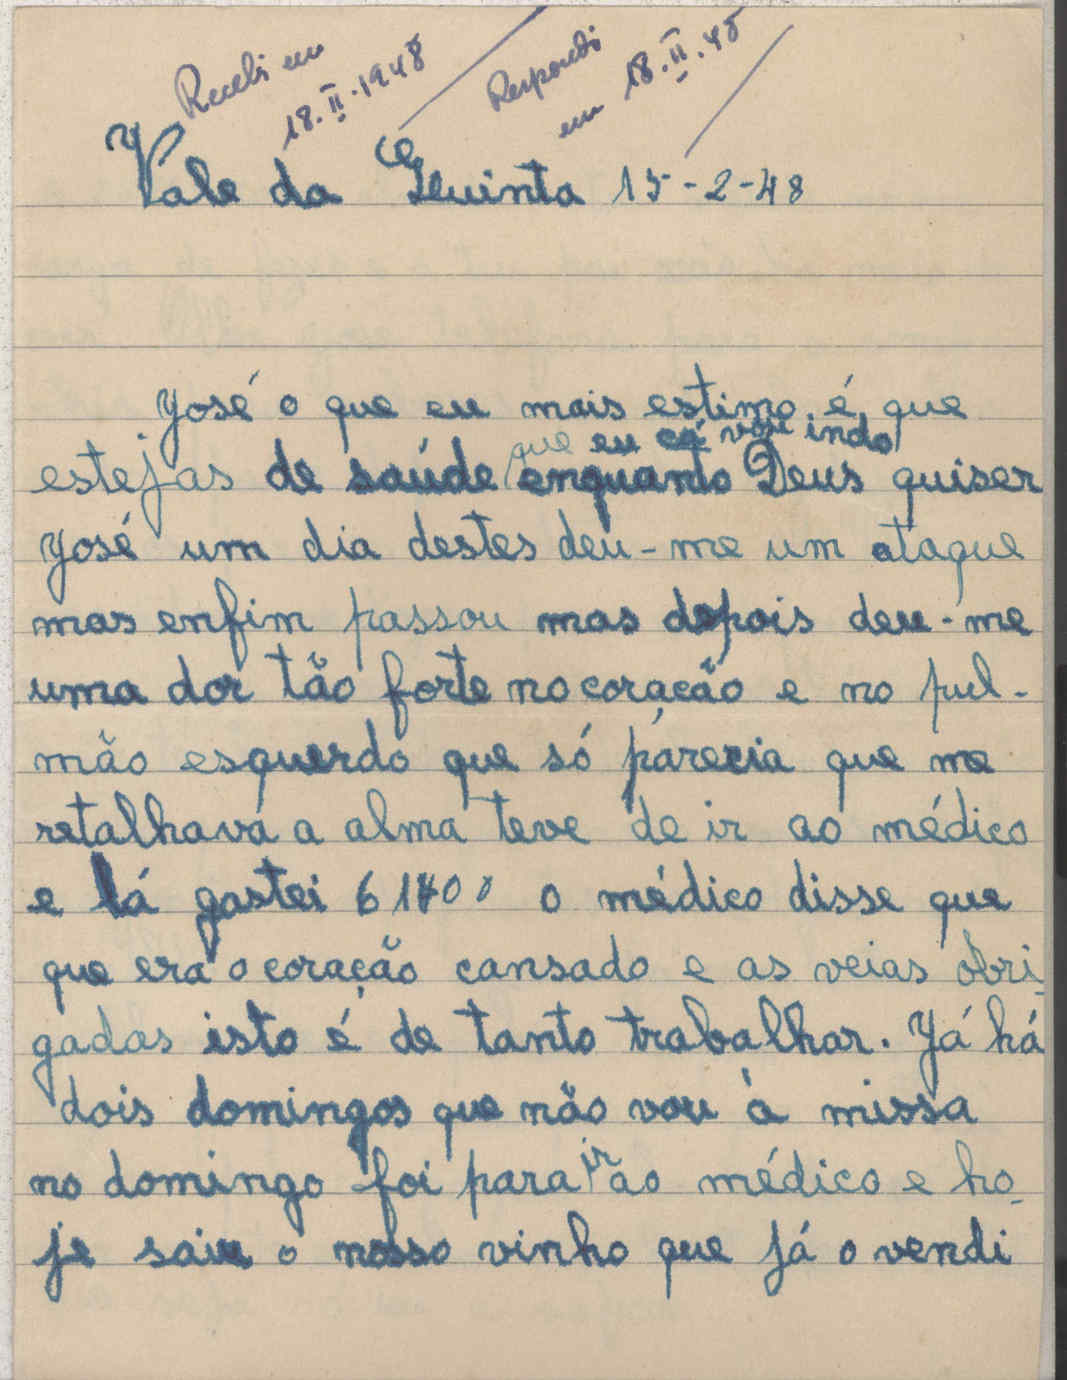 Recebi em
18.II.1948
Respondi
em 18.II.48
Vale da Quinta 15-2-48
José o que eu mais estimo é que
que eu cá vou indo
estejas de saúde enquanto Deus quiser
José um dia destes deu-me um ataque
mas enfim passou mas depois deu-me
uma dor tão forte no coração e no pul-
mão esquerdo que só parecia que me
retalhava a alma teve de ir ao médico
e lá gastei o médico disse que
que era o coração cansado e as veias obri-
gadas isto é de tanto trabalhar. Já há
dois domingos que não vou à missa
no domingo foi para ir ao médico e ho-
je saiu o nosso vinho que já o vendi